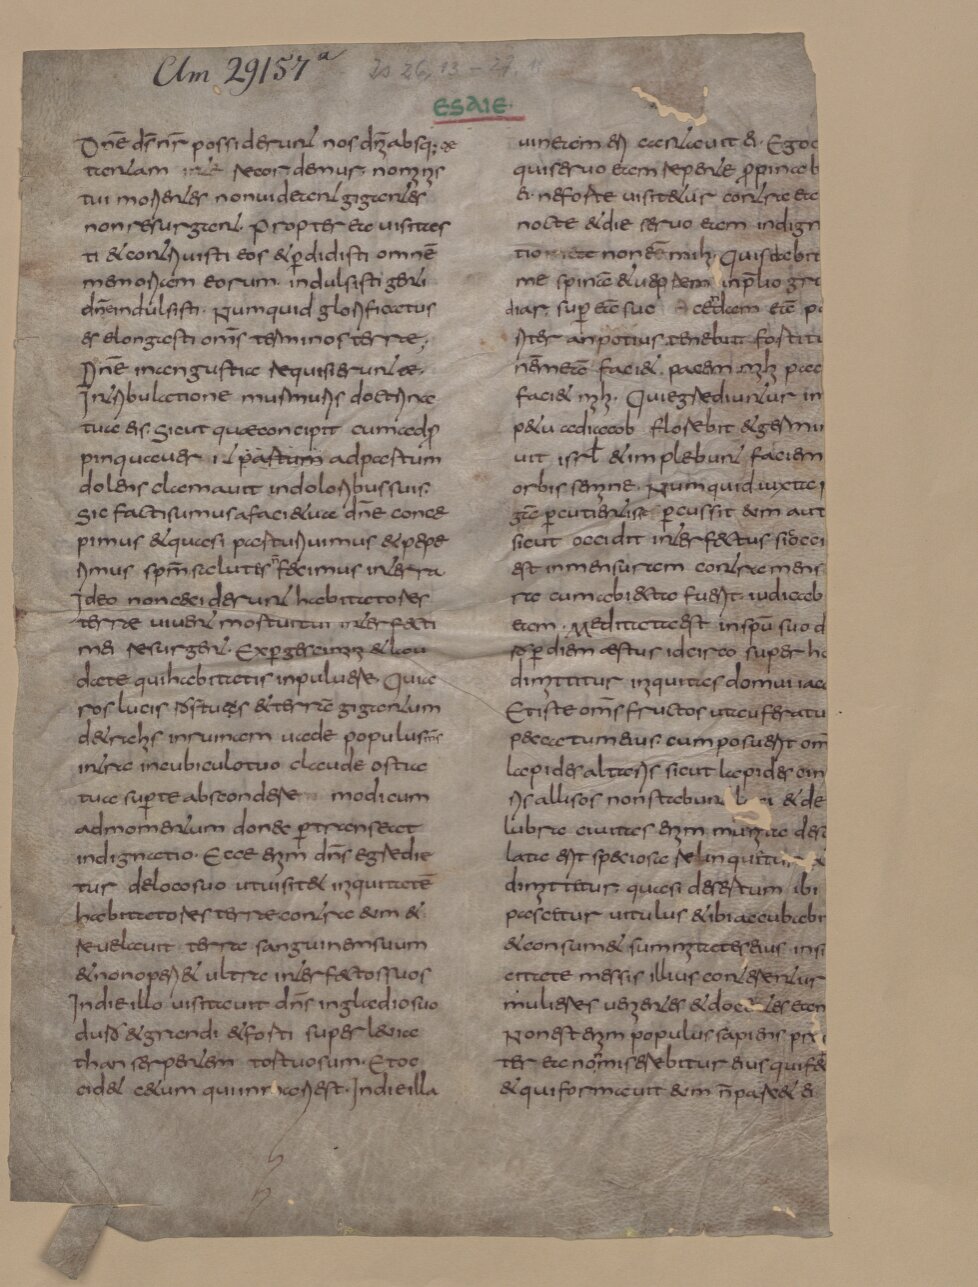 Clm 29157a
Is 26, 13 – 27, 11
ESAIE·
Dne ds nr possiderunt nos dni absq; te
tantum in te recordemur nominis
tui morientes non videant gigantes
non resurgant · Propterea visitas
ti & contrivisti eos & pdidisti omne
memoriam eorum · indulsisti genti
dne indulsisti · Numquid glorificatus
es elongasti oms terminos terre ·
Dne in angustia requisierunt te ·
In tribulatione murmuris doctrina
tua eis · Sicut quae concipit cum adp
pinquaver it pastum ad partum
dolens clamavit in doloribus suis ·
Sic facti sumus a facie tua dne conce
pimus & quasi parturivimus & pepe
rimus spm salutes n fecimus in terra
Ideo non ceciderunt habitatores
terre vivent mortui tui interfecti
mei resurgent · Expergiscimini & lau
date qui habitatis in pulvere Quia
ros lucis ros tuus & terra gigantum
detrahis in ruinam vade populus ms
intra in cubicula tua claude ostia
tua super te abscondere modicum
ad momentum donec ptranseat
indignatio · Ecce enim dns egredie
tur de loco suo ut visitet iniquitate
habitatores terre contra eum &
revelavit terra sanguinem suum
& non operiet ultra interfectos suos
In die illo visitavit dns in gladio suo
duro & grandi & forti super levia
than serpentem tortuosum · Et oc
cidet cetum qui in mari est · In die illa
vinea meri cantavit ei · Ego
qui servo eam repente ppinab
ei ne forte visitetur contra ea
nocte & die servo eam indign
tio mea non est mih · Quis dabit
me spina & vepre in plio gr
diar super eam suc cedam eam p
riter an potius tenebit fortitu
nem meam faciet pacem mihi pac
faciet mihi · Qui egrediuntur in
petu ad iacob florebit & germi
vit isrl & implebunt faciem
orbis semine · Numquid iuxta
gam percutientis percussit eum aut
sicut occidit interfectus sic occi
est in mensuram contra mens
ra cum abiecta fuerit iudicab
eam · Meditata est in spu suo d
ro p diem estus idcirco super h
dimittitur iniquitas domui iac
Et iste oms fructus ut auferatu
peccatum eius cum posuerit om
lapides altaris sicut lapides cin
ris allisos non stabunt luci & de
lubra civitas enim munita des
lata erit speciosa relinquitur
dimittitur quasi desertum ibi
pascetur vitulus & ibi accubabi
& consumet summitates eius in si
citate messis illius conterentur
mulieres venientes & docentes eam
Non est enim populus sapiens pr
ter ea non miserebitur eius qui fe
& qui formavit eum n parcet ei